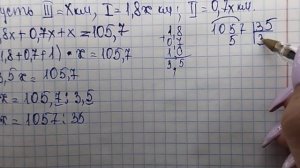 усть III = х км, I = 1,8х км, II = 0,7х км.
8х + 0,7х + х = 105,7
1,8 + 0,7 + 1) · х = 105,7
3,5х = 105,7
х = 105,7 : 3,5
х = 1057 : 35
1,8
+ 0,7
1,0
3,5
1057 35
3